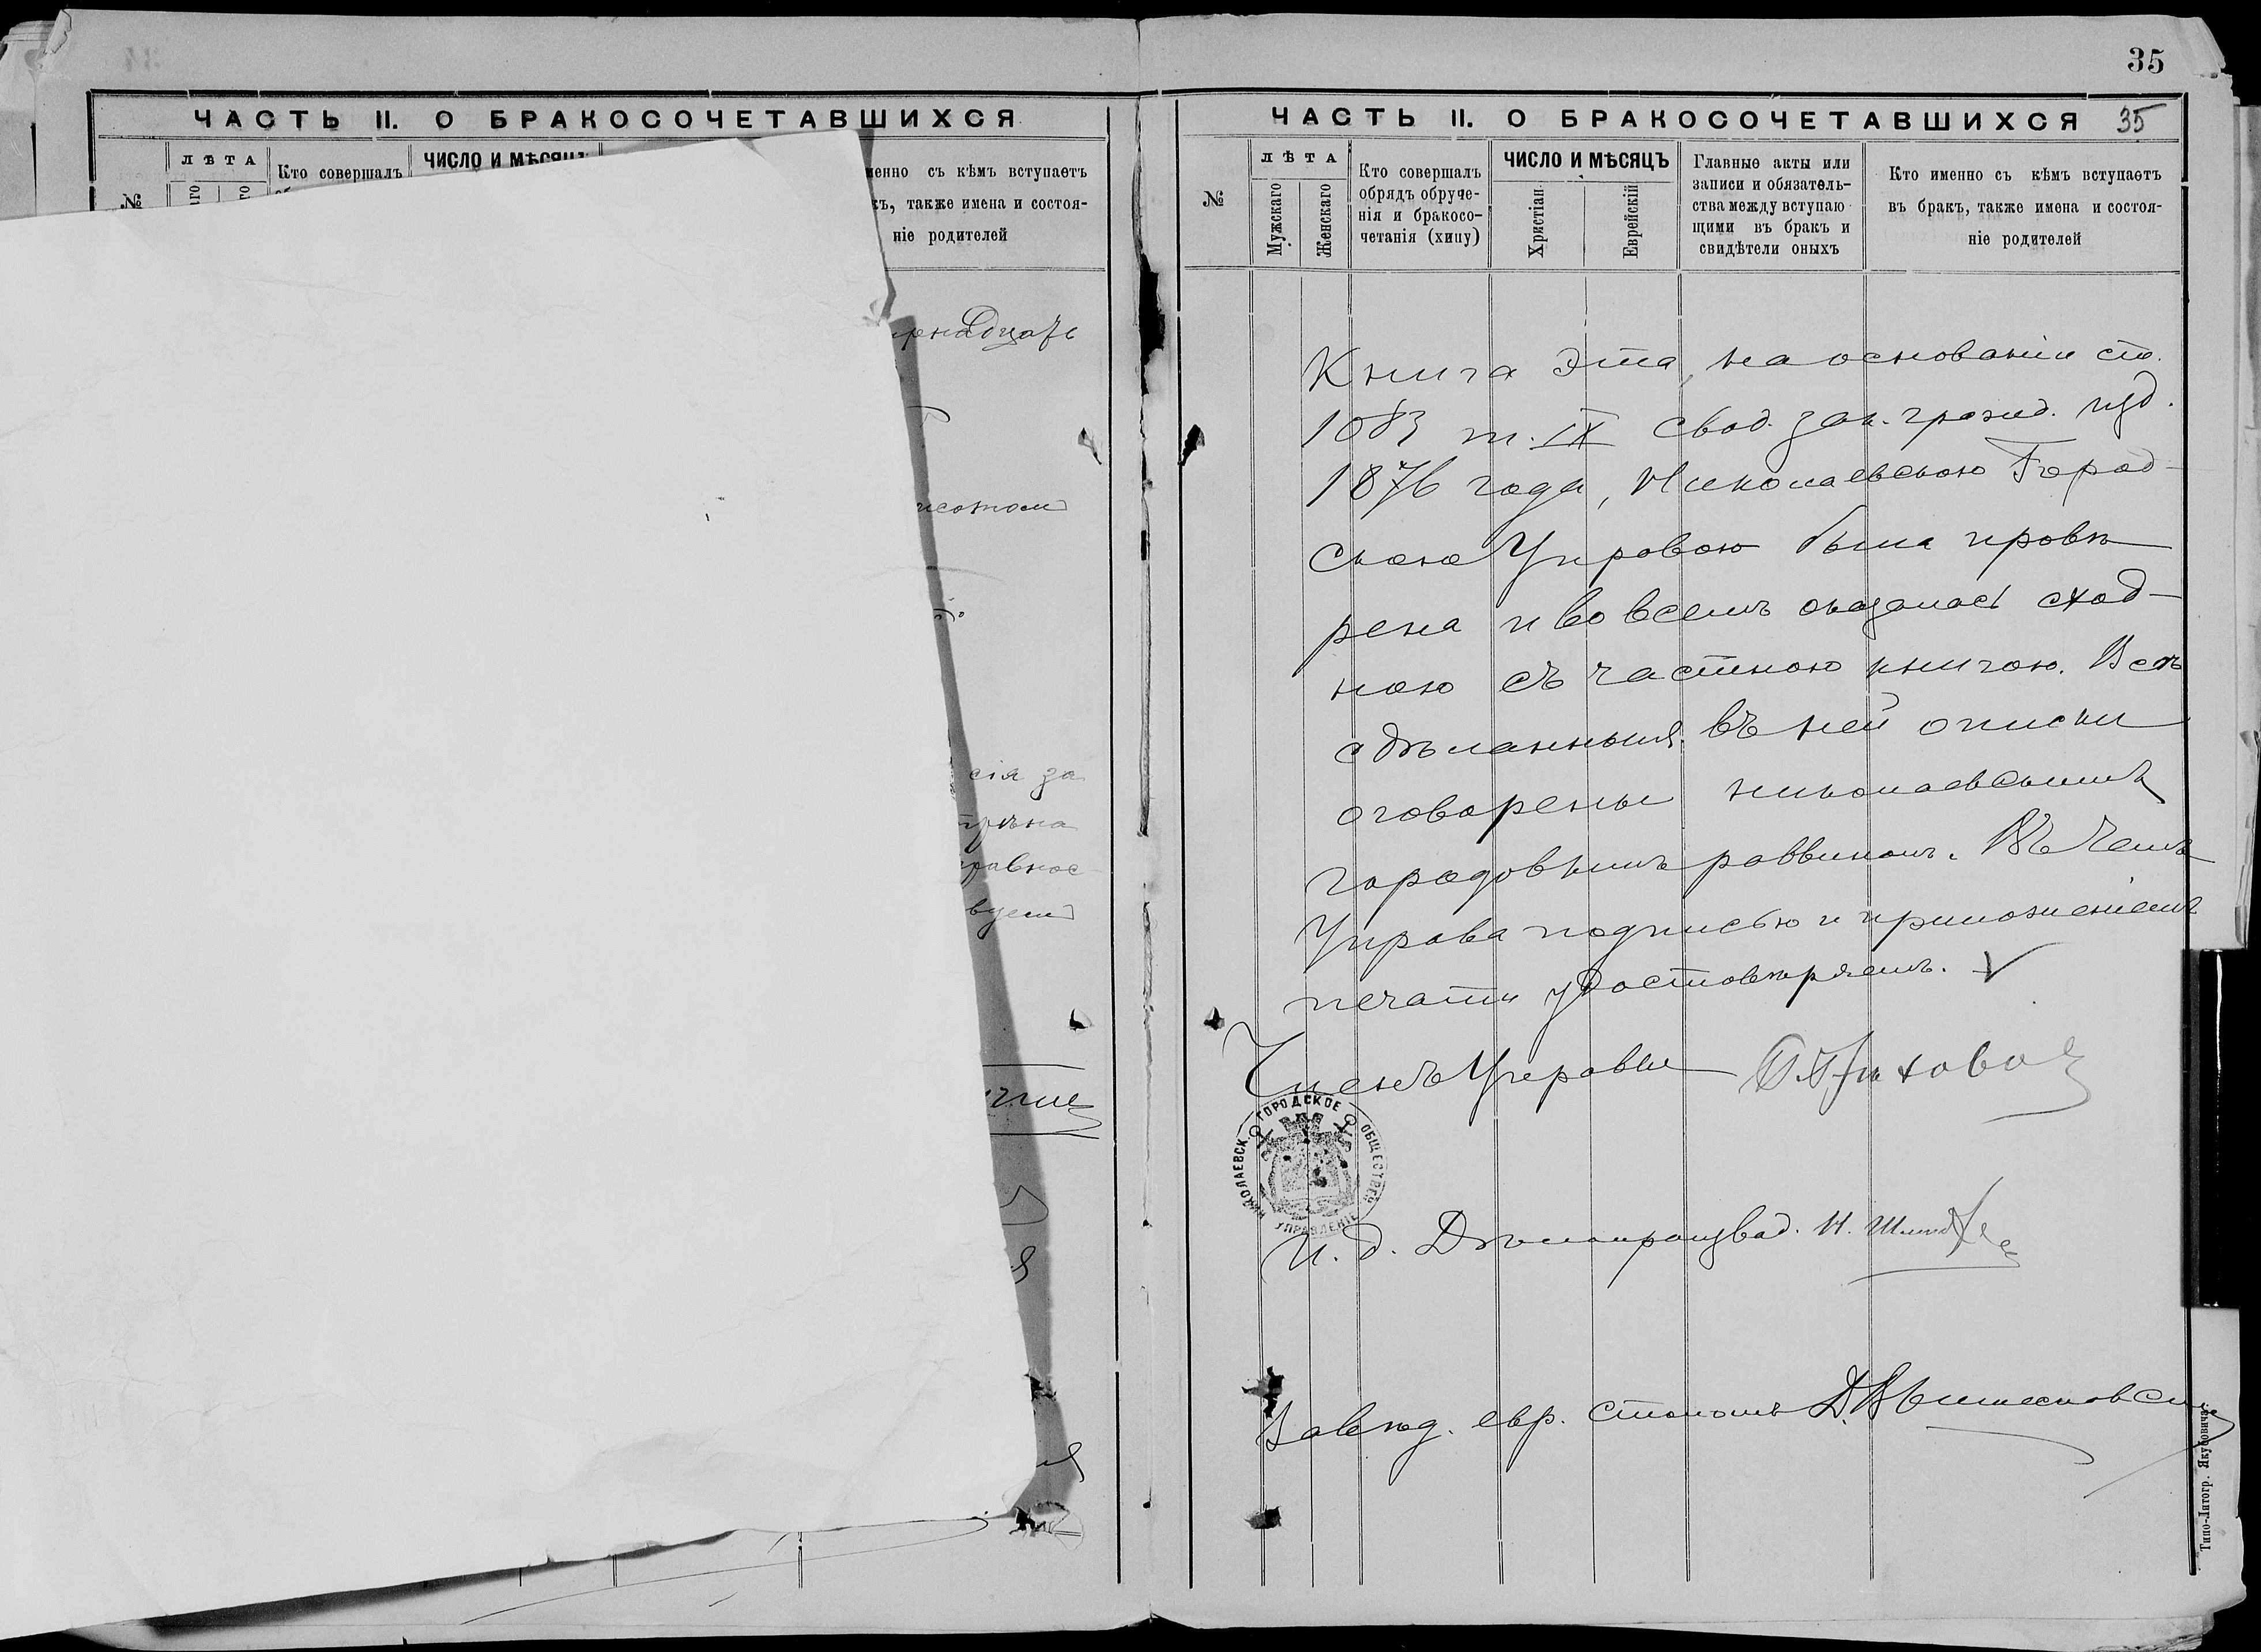 ЧАСТЬ II. О БРАКОСОЧЕТАВШИХСЯ
№
ЛѢТА
Кто совершалъ
ЧИСЛО И МѢСЯЦЪ
менно съ кѣмъ вступаетъ
къ, также имена и состоя-
ніе родителей
сія за
35
ЧАСТЬ II. О БРАКОСОЧЕТАВШИХСЯ 35
№
ЛѢТА
Мужскаго
Женскаго
Кто совершалъ
обрядъ обруче-
нія и бракосо-
четанія (хипу)
ЧИСЛО И МѢСЯЦЪ
Христіан.
Еврейскій
Главные акты или
записи и обязатель-
ства между вступаю
щими въ бракъ и
свидѣтели оныхъ
Кто именно съ кѣмъ вступаетъ
въ бракъ, также имена и состоя-
ніе родителей
Книга эта, на основаніи ст.
1083 т. IX свод. зак. гражд. изд.
1876 года, Николаевскою Город-
скою Управою была провѣ
рена и во всемъ оказалась сход-
ною съ частною книгою. Всѣ
сдѣланныя въ ней описки
оговорены николаевскимъ
городовымъ раввиномъ. Въ чемъ
Управа подписью и приложеніемъ
печати удостовѣряетъ.
Членъ Управы
НИКОЛАЕВСК. ГОРОДСКОЕ ОБЩЕСТВЕН. УПРАВЛЕНІЕ
И. д. Дѣлопроизвод. И.
Завѣд. евр. столомъ
Типо-Литогр. Якубовича.